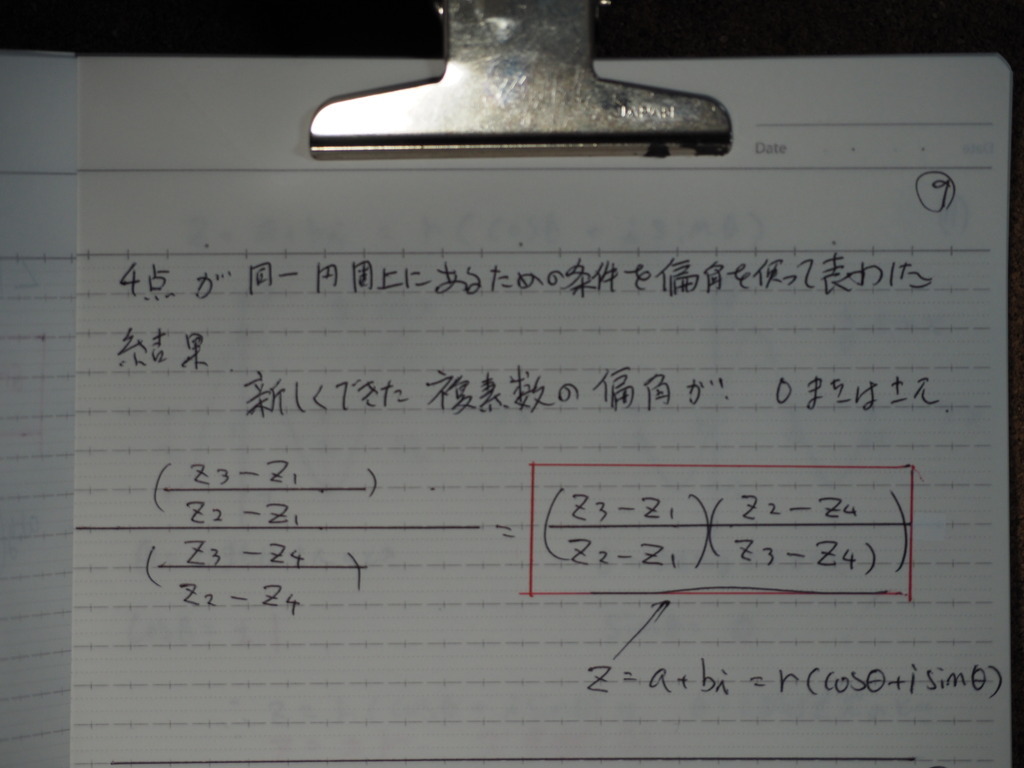 JAPAN
Date
⑨
4点が同一円周上にあるための条件を偏角を使って表わした
結果
新しくできた複素数の偏角が! 0または±π.
(z3-z1/z2-z1)/(z3-z4/z2-z4) = (z3-z1/z2-z1)(z2-z4/z3-z4)
z=a+bi=r(cosθ+i sinθ)